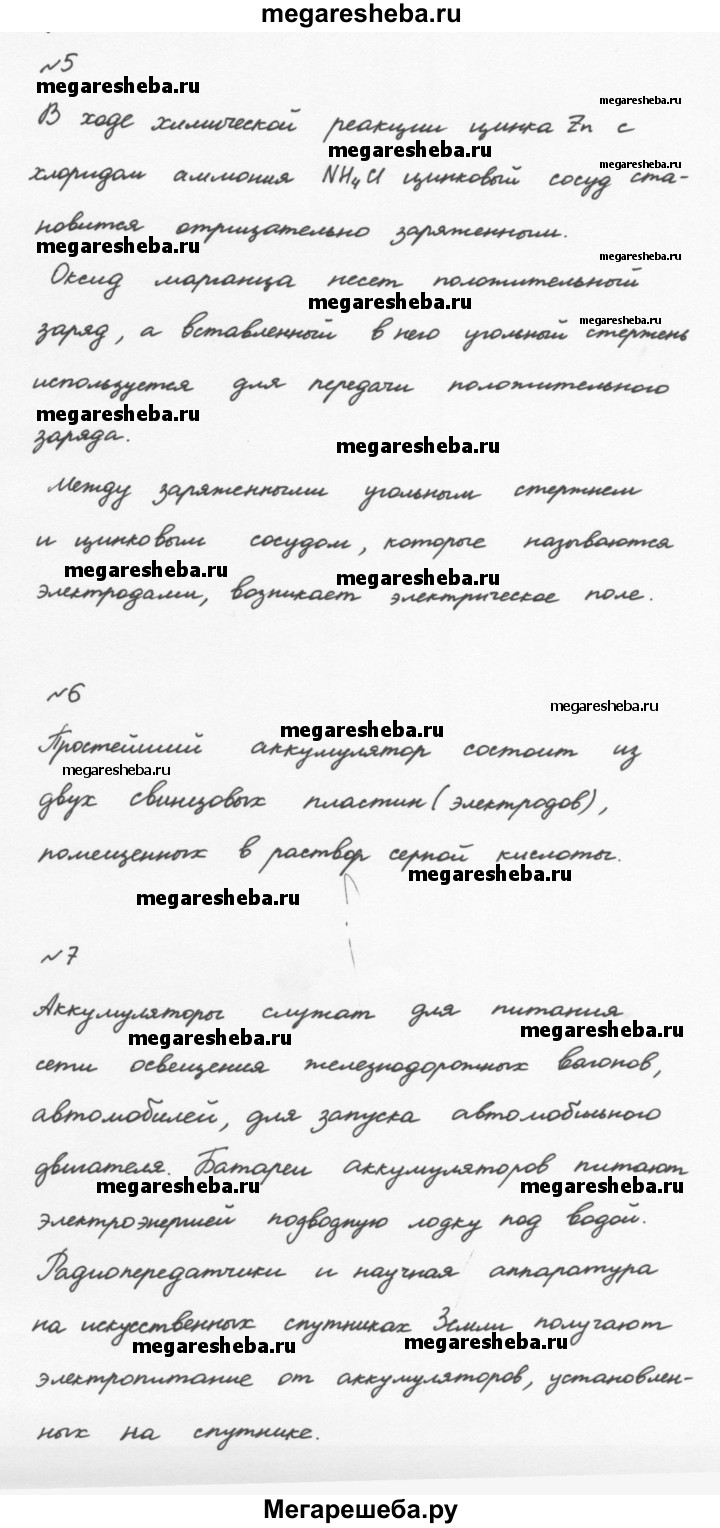 megaresheba.ru
№5
megaresheba.ru
megaresheba.ru
В ходе химической реакции цинка Zn с
megaresheba.ru
megaresheba.ru
хлоридом аммония NH₄Cl цинковый сосуд ста-
новится отрицательно заряженным.
megaresheba.ru
megaresheba.ru
Оксид марганца несет положительный
megaresheba.ru
megaresheba.ru
заряд, а вставленный в него угольный стержень
используется для передачи положительного
megaresheba.ru
заряда.
megaresheba.ru
Между заряженными угольным стержнем
и цинковым сосудом, которые называются
megaresheba.ru
megaresheba.ru
электродами, возникает электрическое поле.
№6
megaresheba.ru
megaresheba.ru
Простейший аккумулятор состоит из
megaresheba.ru
двух свинцовых пластин (электродов),
помещенных в раствор серной кислоты.
megaresheba.ru
megaresheba.ru
№7
Аккумуляторы служат для питания
megaresheba.ru
megaresheba.ru
сети освещения железнодорожных вагонов,
автомобилей, для запуска автомобильного
двигателя. Батареи аккумуляторов питают
megaresheba.ru
megaresheba.ru
электроэнергией подводную лодку под водой.
Радиопередатчики и научная аппаратура
на искусственных спутниках Земли получают
megaresheba.ru
megaresheba.ru
электропитание от аккумуляторов, установлен-
ных на спутнике.
Мегарешеба.ру